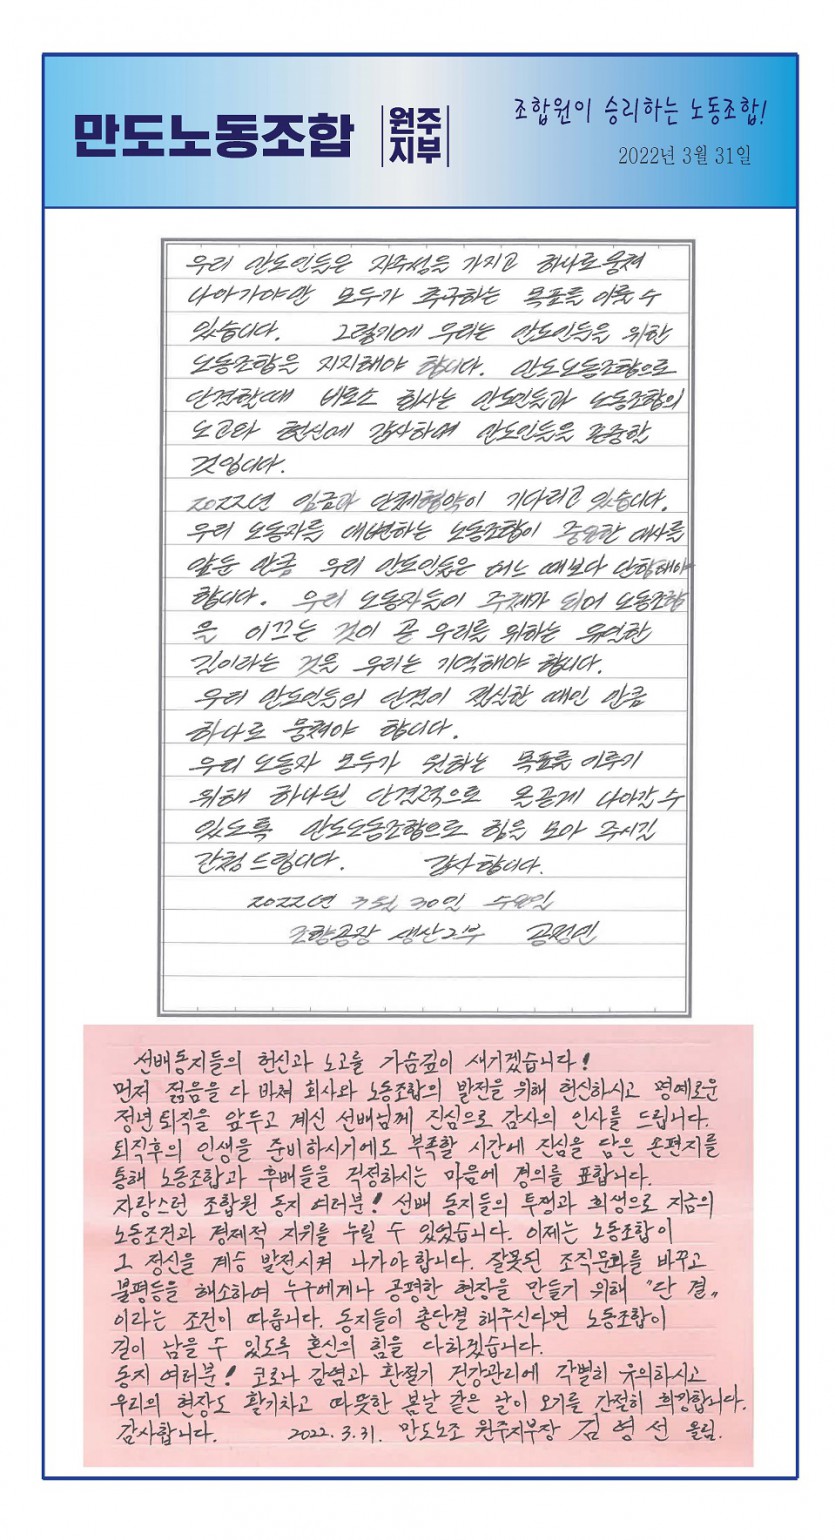 만도노동조합
원주
지부
조합원이 승리하는 노동조합!
2022년 3월 31일
우리 만도인들은 자주성을 가지고 하나로 뭉쳐
나아가야만 모두가 추구하는 목표를 이룰 수
있습니다. 그렇기에 우리는 만도인들을 위한
노동조합을 지지해야 합니다. 만도노동조합으로
단결할때 비로소 회사는 만도인들과 노동조합의
노고와 헌신에 감사하며 만도인들을 존중할
것입니다.
2022년 임금과 단체협약이 기다리고 있습니다.
우리 노동자를 대변하는 노동조합이 중요한 대사를
앞둔 만큼 우리 만도인들은 어느 때보다 단합해야
합니다. 우리 노동자들이 주체가 되어 노동조합
을 이끄는 것이 곧 우리를 위하는 유일한
길이라는 것을 우리는 기억해야 합니다.
우리 만도인들의 단결이 절실한 때인 만큼
하나로 뭉쳐야 합니다.
우리 노동자 모두가 원하는 목표를 이루기
위해 하나된 단결력으로 올곧게 나아갈 수
있도록 만도노동조합으로 힘을 모아 주시길
간청드립니다. 감사합니다.
2022년 3월 30일 수요일
조향공장 생산2부
선배동지들의 헌신과 노고를 가슴깊이 새기겠습니다!
먼저 젊음을 다 바쳐 회사와 노동조합의 발전을 위해 헌신하시고 명예로운
정년퇴직을 앞두고 계신 선배님께 진심으로 감사의 인사를 드립니다.
퇴직후의 인생을 준비하시기에도 부족할 시간에 진심을 담은 손편지를
통해 노동조합과 후배들을 걱정하시는 마음에 경의를 표합니다.
자랑스런 조합원 동지 여러분! 선배 동지들의 투쟁과 희생으로 지금의
노동조건과 경제적 지위를 누릴 수 있었습니다. 이제는 노동조합이
그 정신을 계승 발전시켜 나가야 합니다. 잘못된 조직문화를 바꾸고
불평등을 해소하여 누구에게나 공평한 현장을 만들기 위해 "단 결"
이라는 조건이 따릅니다. 동지들이 총단결 해주신다면 노동조합이
길이 남을 수 있도록 혼신의 힘을 다하겠습니다.
동지 여러분! 코로나 감염과 환절기 건강관리에 각별히 유의하시고
우리의 현장도 활기차고 따뜻한 봄날 같은 날이 오기를 간절히 희망합니다.
감사합니다. 2022.3.31. 만도노조 원주지부장 김병선 올림.